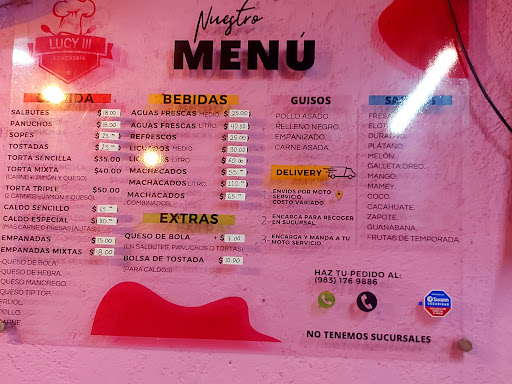 LUCY III
LONCHERIA
Nuestro
MENÚ
SALBUTES $18.00
PANUCHOS $18.00
SOPES $25.00
TOSTADAS $25.00
TORTA SENCILLA $35.00
TORTA MIXTA $40.00
(CARNE+JAMÓN Y QUESO)
TORTA TRIPLE $50.00
(2 CARNES+JAMÓN Y QUESO)
CALDO SENCILLO
CALDO ESPECIAL
(MAS CARNE O PRESAS (ALITAS)
EMPANADAS $15.00
EMPANADAS MIXTAS $18.00
QUESO DE BOLA.
QUESO DE HEBRA.
QUESO MANCHEGO.
QUESO TIP TOP.
BEBIDAS
AGUAS FRESCAS MEDIO $25.00
AGUAS FRESCAS LITRO
REFRESCOS $25.00
LICUADOS MEDIO $30.00
LITRO
MACHACADOS
MACHACADOS LITRO
MACHACADOS
COMBINADOS
EXTRAS
QUESO DE BOLA
(EN SALBUTES, PANUCHOS O TORTAS)
BOLSA DE TOSTADA $10.00
(PARA CALDOS)
GUISOS
POLLO ASADO.
RELLENO NEGRO.
EMPANIZADO.
CARNE ASADA.
DELIVERY
ENVIOS POR MOTO
SERVICIO,
COSTO VARIADO
2- ENCARGA PARA RECOGER
EN SUCURSAL
3- ENCARGA Y MANDA A TU
MOTO SERVICIO
PLATANO
MELÓN.
GALLETA OREO.
MANGO.
MAMEY.
COCO.
CACAHUATE.
ZAPOTE.
GUANABANA.
FRUTAS DE TEMPORADA.
HAZ TU PEDIDO AL:
(983) 176 9886
Swann
NO TENEMOS SUCURSALES